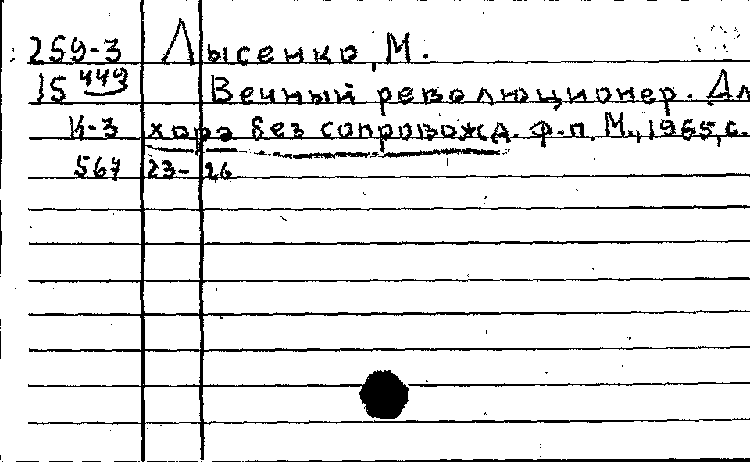 259-3 Лысенко, М.
15 449 Вечный революционер. Дл
К-3 хора без сопровожд. ф-п. М., 1965, с.
567 23-26